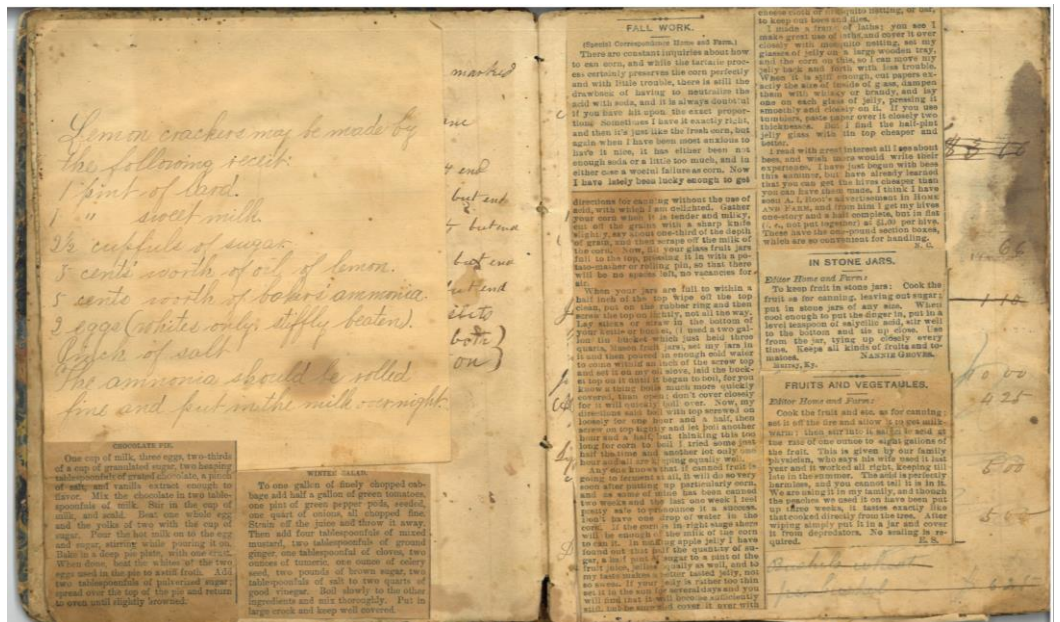 Lemon crackers may be made by
the following receit:
1 pint of lard.
1 " sweet milk.
2½ cupfuls of sugar.
5 cents worth of oil of lemon.
5 cents worth of baker's ammonia.
2 eggs (whites only, stiffly beaten).
Pinch of salt.
The ammonia should be rolled
fine and put in the milk overnight.
marked
end
but end
but end
but end
but end
both)
on)
CHOCOLATE PIE.
One cup of milk, three eggs, two-thirds
of a cup of granulated sugar, two heaping
tablespoonfuls of grated chocolate, a pinch
of salt, and vanilla extract enough to
flavor. Mix the chocolate in two table-
spoonfuls of milk. Stir in the cup of
milk, and scald. Beat one whole egg
and the yolks of two with the cup of
sugar. Pour the hot milk on to the egg
and sugar, stirring while pouring it on.
Bake in a deep pie plate, with one crust.
When done, beat the whites of the two
eggs used in the pie to a stiff froth. Add
two tablespoonfuls of pulverized sugar;
spread over the top of the pie and return
to oven until slightly browned.
WINTER SALAD.
To one gallon of finely chopped cab-
bage add half a gallon of green tomatoes,
one pint of green pepper pods, seeded,
one quart of onions, all chopped fine.
Strain off the juice and throw it away.
Then add four tablespoonfuls of mixed
mustard, two tablespoonfuls of ground
ginger, one tablespoonful of cloves, two
ounces of tumeric, one ounce of celery
seed, two pounds of brown sugar, two
tablespoonfuls of salt to two quarts of
good vinegar. Boil slowly to the other
ingredients and mix thoroughly. Put in
large crock and keep well covered.
FALL WORK.
(Special Correspondence Home and Farm.)
There are constant inquiries about how
to can corn, and while the tartaric proc-
ess certainly preserves the corn perfectly
and with little trouble, there is still the
drawback of having to neutralize the
acid with soda, and it is always doubtful
if you have hit upon the exact propor-
tion. Sometimes I have it exactly right,
and then it's just like the fresh corn, but
again when I have been most anxious to
have it nice, it has either been not
enough soda or a little too much, and in
either case a woeful failure as corn. Now
I have lately been lucky enough to get
directions for canning without the use of
acid, with which I am delighted. Gather
your corn when it is tender and milky,
cut off the grains with a sharp knife
slightly, say about one-third of the depth
of grain, and then scrape off the milk of
the corn. Now, fill your glass fruit jars
full to the top, pressing it in with a po-
tato-masher or rolling pin, so that there
will be no spaces left, no vacancies for
air.
When your jars are full to within a
half inch of the top wipe off the top
clean, put on the rubber ring and then
screw the top on tightly, not all the way.
Lay sticks or straw in the bottom of
your kettle or boiler. (I used a two gal-
lon tin bucket which just held three
quarts, Mason fruit jars), set my jars in
it and then poured in enough cold water
to come within an inch of the screw top
and set it on my oil stove, laid the buck-
et top on it until it began to boil, for you
know a thing boils much more quickly
covered, than open; don't cover closely
for it will quickly boil over. Now, my
directions said boil with top screwed on
loosely for one hour and a half, then
screw on top tightly and let boil another
hour and a half, but thinking this too
long for corn to boil I tried some just
half the time and another lot only one
hour and all are keeping equally well.
Any one knows that if canned fruit is
going to ferment at all, it will do so very
soon after putting up particularly corn,
and as some of mine has been canned
two weeks and the last one week I feel
pretty safe to pronounce it a success.
Don't have one drop of water in the
corn. If the corn is in right stage there
will be enough of the milk of the corn
to can it. In making apple jelly I have
found out that half the quantity of su-
gar, a half pint of sugar to a pint of the
fruit juice, jellies equally as well, and to
my taste makes a better tasted jelly, not
so sweet. If your jelly is rather too thin
set it to the sun for several days and you
will find that it will become sufficiently
stiff, but be sure and cover it over with
cheese cloth or mosquito netting, or bar,
to keep out bees and flies.
I made a frame of laths; you see I
make great use of laths, and cover it over
closely with mosquito netting, set my
glasses of jelly on a large wooden tray,
and the corn on this, so I can move my
jelly back and forth with less trouble.
When it is stiff enough, cut papers ex-
actly the size of inside of glass, dampen
them with whisky or brandy, and lay
one on each glass of jelly, pressing it
smoothly and closely on it. If you use
tumblers, paste paper over it closely two
thicknesses. But I find the half-pint
jelly glass with tin top cheaper and
better.
I read with great interest all I see about
bees, and wish more would write their
experience. I have just begun with bees
this summer, but have already learned
that you can get the hives cheaper than
you can have them made. I think I have
seen A. I. Root's advertisement in HOME
AND FARM, and from him I get my hives
one-story and a half complete, but in flat
(i. e., not put together) at $1.00 per hive.
These have the one-pound section boxes,
which are so convenient for handling.
IN STONE JARS.
Editor Home and Farm:
To keep fruit in stone jars: Cook the
fruit as for canning, leaving out sugar;
put in stone jars of any size. When
cool enough to put the finger in, put in a
level teaspoon of salycilic acid, stir well
to the bottom and tie up close. Use
from the jar, tying up closely every
time. Keeps all kinds of fruits and to-
matoes. NANNIE GROVES.
Murray, Ky.
FRUITS AND VEGETABLES.
Editor Home and Farm:
Cook the fruit and etc. as for canning;
set it off the fire and allow it to get milk-
warm; then stir in the acid to
the rate of one ounce to eight gallons of
the fruit. This is given by our family
physician, who says his wife used it last
year and it worked all right, keeping till
late in the summer. The acid is perfectly
harmless, and you cannot tell it is in it.
We are using it in my family, and though
the peaches we used it on have been put
up three weeks, it tastes exactly like
that cooked directly from the tree. After
wiping simply put it in a jar and cover
it from depredators. No sealing is re-
quired.
66
1 10
4 25
5 00
5 00